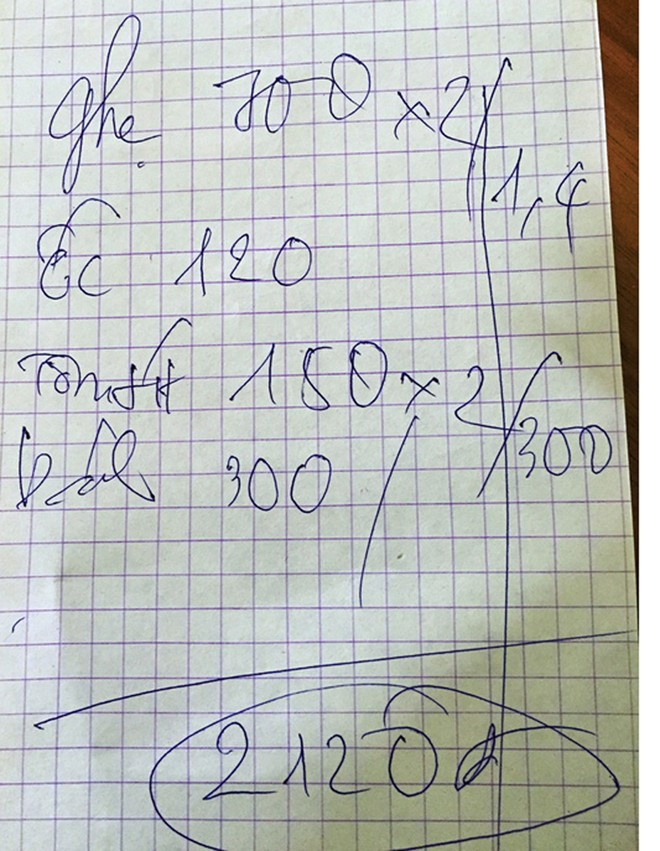 ghẹ 700 x 2 / 1,4
Ốc 120
Tôm 150 x 2 / 300
300
2120đ